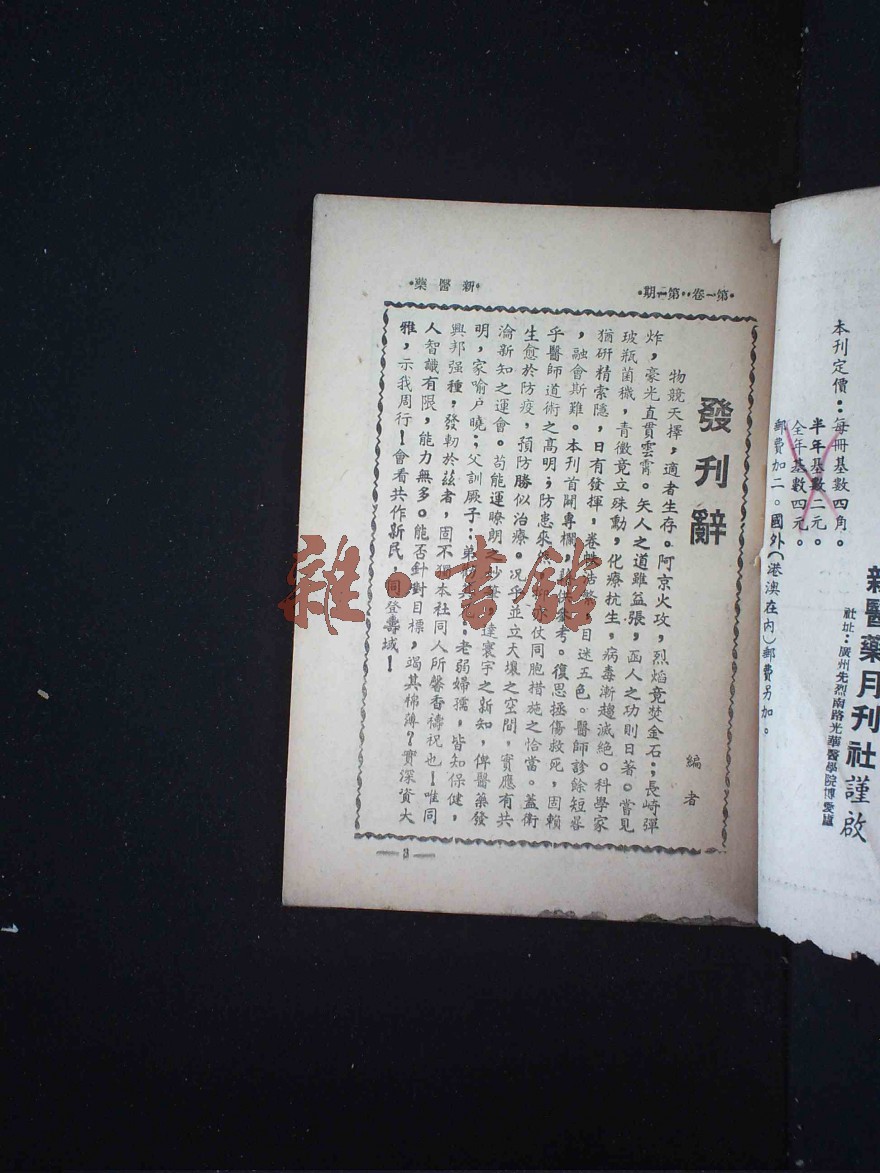 本刊定價：每冊基數四角。
半年基數二元。
全年基數四元。
郵費加二。國外（港澳在內）郵費另加。
新醫藥月刊社謹啟
社址：廣州先烈南路光華醫學院博愛廬
•第一卷•第一期•
•新醫藥•
發刊辭
編者
物競天擇，適者生存。阿京火攻，烈焰竟焚金石；長崎彈
炸，豪光直貫雲霄。矢人之道雖益張，函人之功則日著。嘗見
玻瓶菌穢，青黴竟立殊勳，化療抗生，病毒漸趨滅絕。科學家
猶研精索隱，日有發揮，卷帙浩繁，目迷五色。醫師診餘短晷
，融會斯難。本刊首開專欄，供參考。復思拯傷救死，固賴
乎醫師道術之高明；防患來亦仗同胞措施之恰當。蓋衛
生愈於防疫，預防勝似治療。况乎並立天壤之空間，實應有共
淪新知之運會。苟能運瞭朗之妙筆，達寰宇之新知，俾醫藥發
明，家喻户曉；父訓厥子；弟老弱婦孺，皆知保健，
興邦强種，發軔於玆者，固不獨本社同人所馨香禱祝也！唯同
人智識有限，能力無多。能否針對目標，竭其棉薄？實深資大
雅，示我周行！會看共作新民，同登壽域！
— 3 —
雜·書館